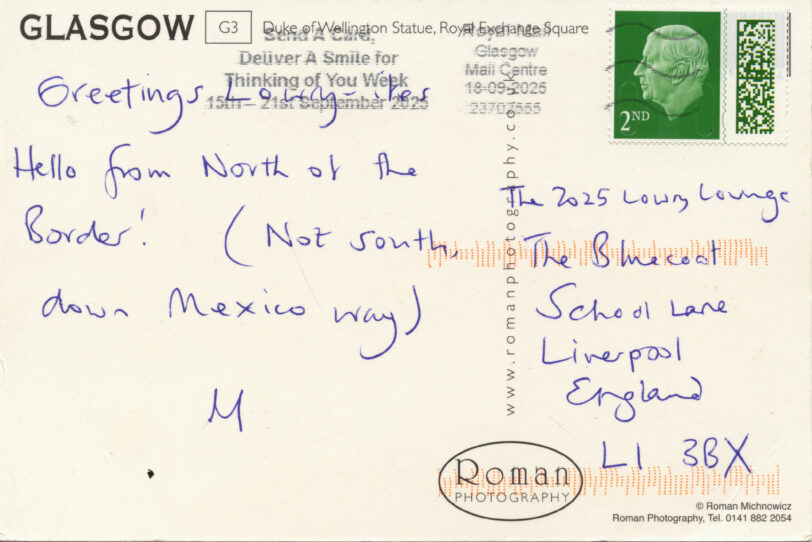 GLASGOW G3 Duke of Wellington Statue, Royal Exchange Square
Send A Card,
Deliver A Smile for
Thinking of You Week
15th – 21st September 2025
Royal Mail
Glasgow
Mail Centre
18-09-2025
2ND
Greetings Lowry-ites
Hello from North of the
Border! (Not south,
down Mexico way)
M
www.romanphotography.co.uk
The 2025 Lowry Lounge
The Bluecoat
School Lane
Liverpool
England
L1 3BX
Roman
PHOTOGRAPHY
© Roman Michnowicz
Roman Photography, Tel. 0141 882 2054